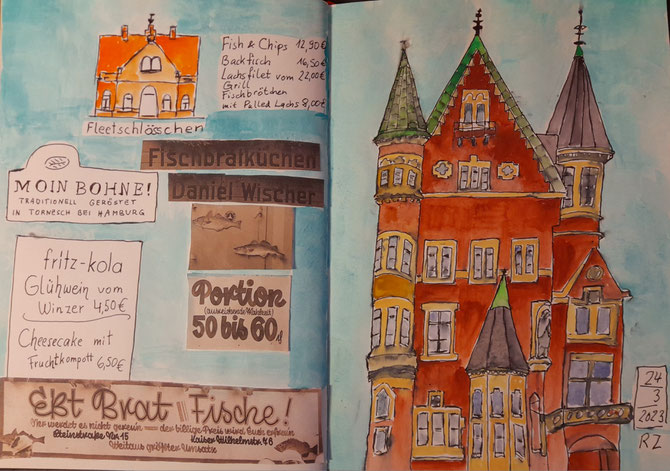 Fish & Chips 12,90€
Backfisch 16,50€
Lachsfilet vom 22,00€
Grill
Fischbrötchen
mit Pulled Lachs 8,00€
Fleetschlösschen
Fischbratküchen
Daniel Wischer
MOIN BOHNE!
TRADITIONELL GERÖSTET
IN TORNESCH BEI HAMBURG
Portion
50 bis 60
fritz-kola
Glühwein vom
Winzer 4,50€
Cheesecake mit
Fruchtkompott 6,50€
Eßt Brat=Fische!
Wer werdet es nicht bereun der billige Preis wird Euch erfreun
Steinstraße Nr. 15 Kaiser Wilhelmstr. 46
Weitaus größter Umsatz
24
3
2023
RZ